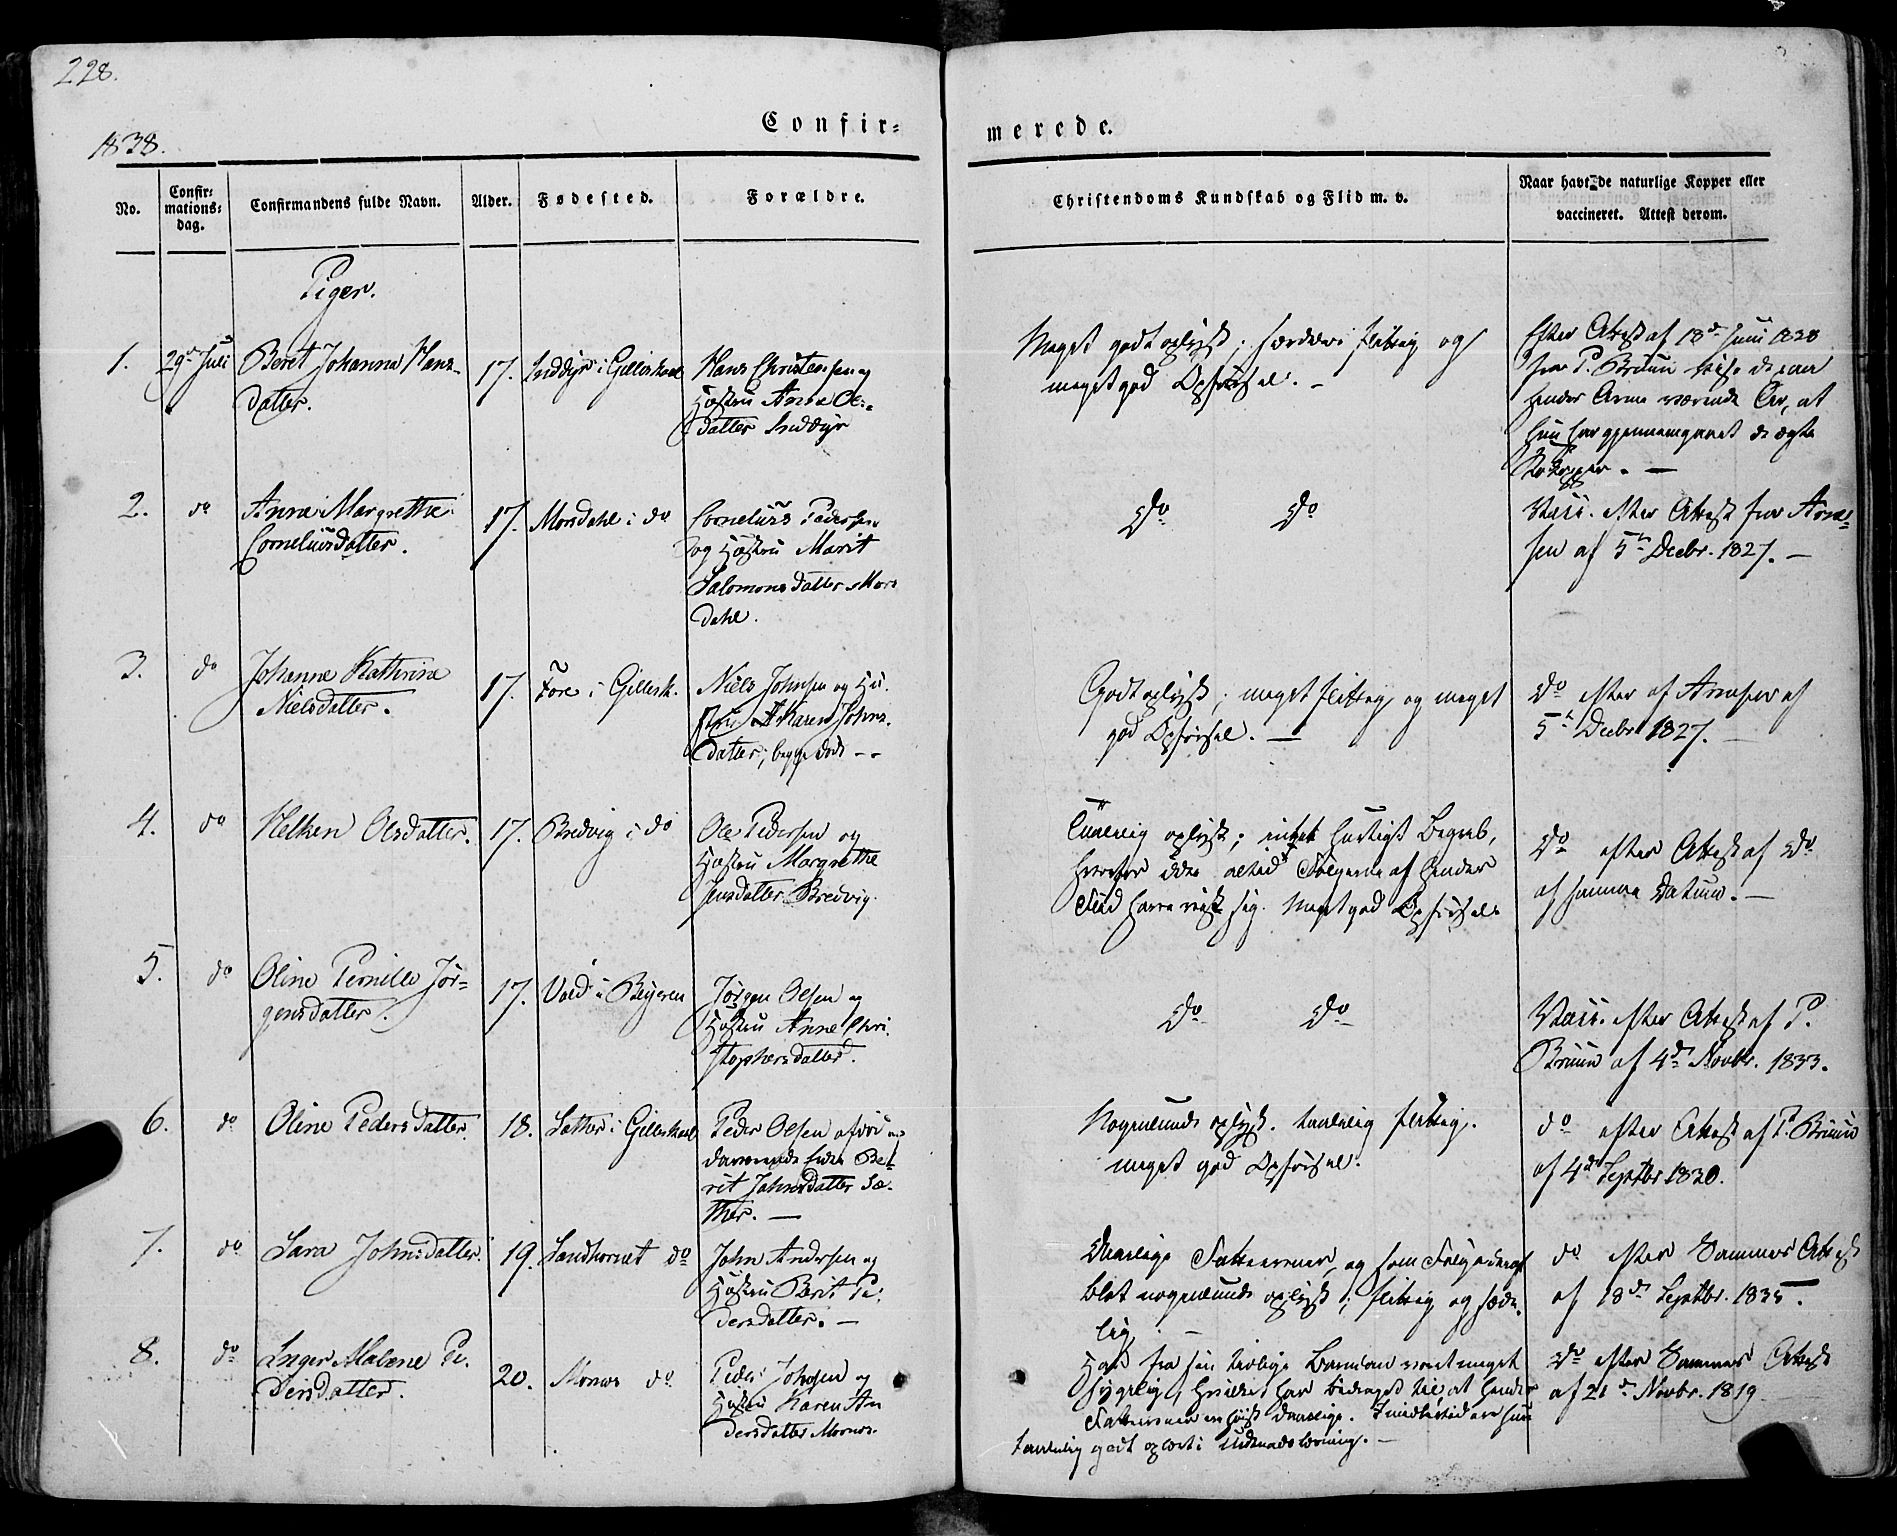 228.
1838.
Confir=
merede.
No.
Confir=
mations=
dag.
Confirmandens fulde Navn.
Alder.
Fødested.
Forældre.
Christendoms Kundskab og Flid m. v.
Naar havt de naturlige Kopper eller
vaccineret. Attest derom.
Piger.
1. 29de Juli Beret Johanna Hans=
datter.
17. Inddyr i Gilleskaal
Hans Christensen og
Hustru Anna Ols=
datter Inddyr
Meget godt oplyst; særdeles flittig og
meget god Opførsel. -
Efter Attest af 18de Juni 1838
fra P. Bruun vise de paa
hendes Arme værende Ar, at
hun har gjennemgaaet de ægte
Kokopper. -
2. do Anne Margrethe
Corneliusdatter.
17. Morsdahl i do
Cornelius Pedersen
og Hustru Marit
Salomonsdatter Mors
dahl.
do do
Vacc. efter Attest fra Arne=
sen af 5te Decbr. 1827. -
3. do Johanne Kathrine
Nielsdatter.
17. Fore i Gillesk.
Niels Johnsen og Hu.
stru Karen Johns.
datter, begge døde - -
Godt oplyst; meget flittig og meget
god Opførsel. -
do efter af Arnesen af
5te Decbr 1827. -
4. do Helken Olsdatter.
17. Bredvig i do
Ole Pedersen og
Hustru Margrethe
Jensdatter Bredvig.
Taalelig oplyst; intet hurtigt Begreb,
hvorfor ikke altid Følgerne af hendes
Flid have viist sig. Meget god Opførsel.
do efter Attest af do
af samme Datum. -
5. do Oline Pernille Jør=
gensdatter.
17. Vold i Beijeren
Jørgen Olsen og
Hustru Anne Chri.
stophersdatter.
do do
Vacc. efter Attest af P.
Bruun af 4de Novbr. 1833.
6. do Oline Pedersdatter.
18. Sætter i Gilleskaal
Peder Olsen afdød og
daværende Be=
rit Johnsdatter Sæ.
ther. -
Nogenlunde oplyst. taalelig flittig.
meget god Opførsel.
do efter Attest af P. Bruun
af 4de Septbr 1830.
7. do Sara Johnsdatter.
19. Sandhornet do
John Andersen og
Hustru Berit Pe.
dersdatter. -
Daarlige Fatteevner, og som Følge deraf
blot nogenlunde oplyst; flittig og sæde.
lig. -
do efter Sammes Attest
af 18de Septbr. 1835.
8. do Inger Malene Pe.
dersdatter.
20. Mornes do
Peder Johnsen og
Hustru Karen An
dersdatter Mornes.
Har fra sin tidlige Barndom været meget
sygelig, hvilket har bidraget til at hendes
Fatteevner ere høist daarlige. Imidlertid er hun
taalelig godt oplært i Udenadslæsning. -
do efter Sammes Attest
af 21de Novbr. 1819